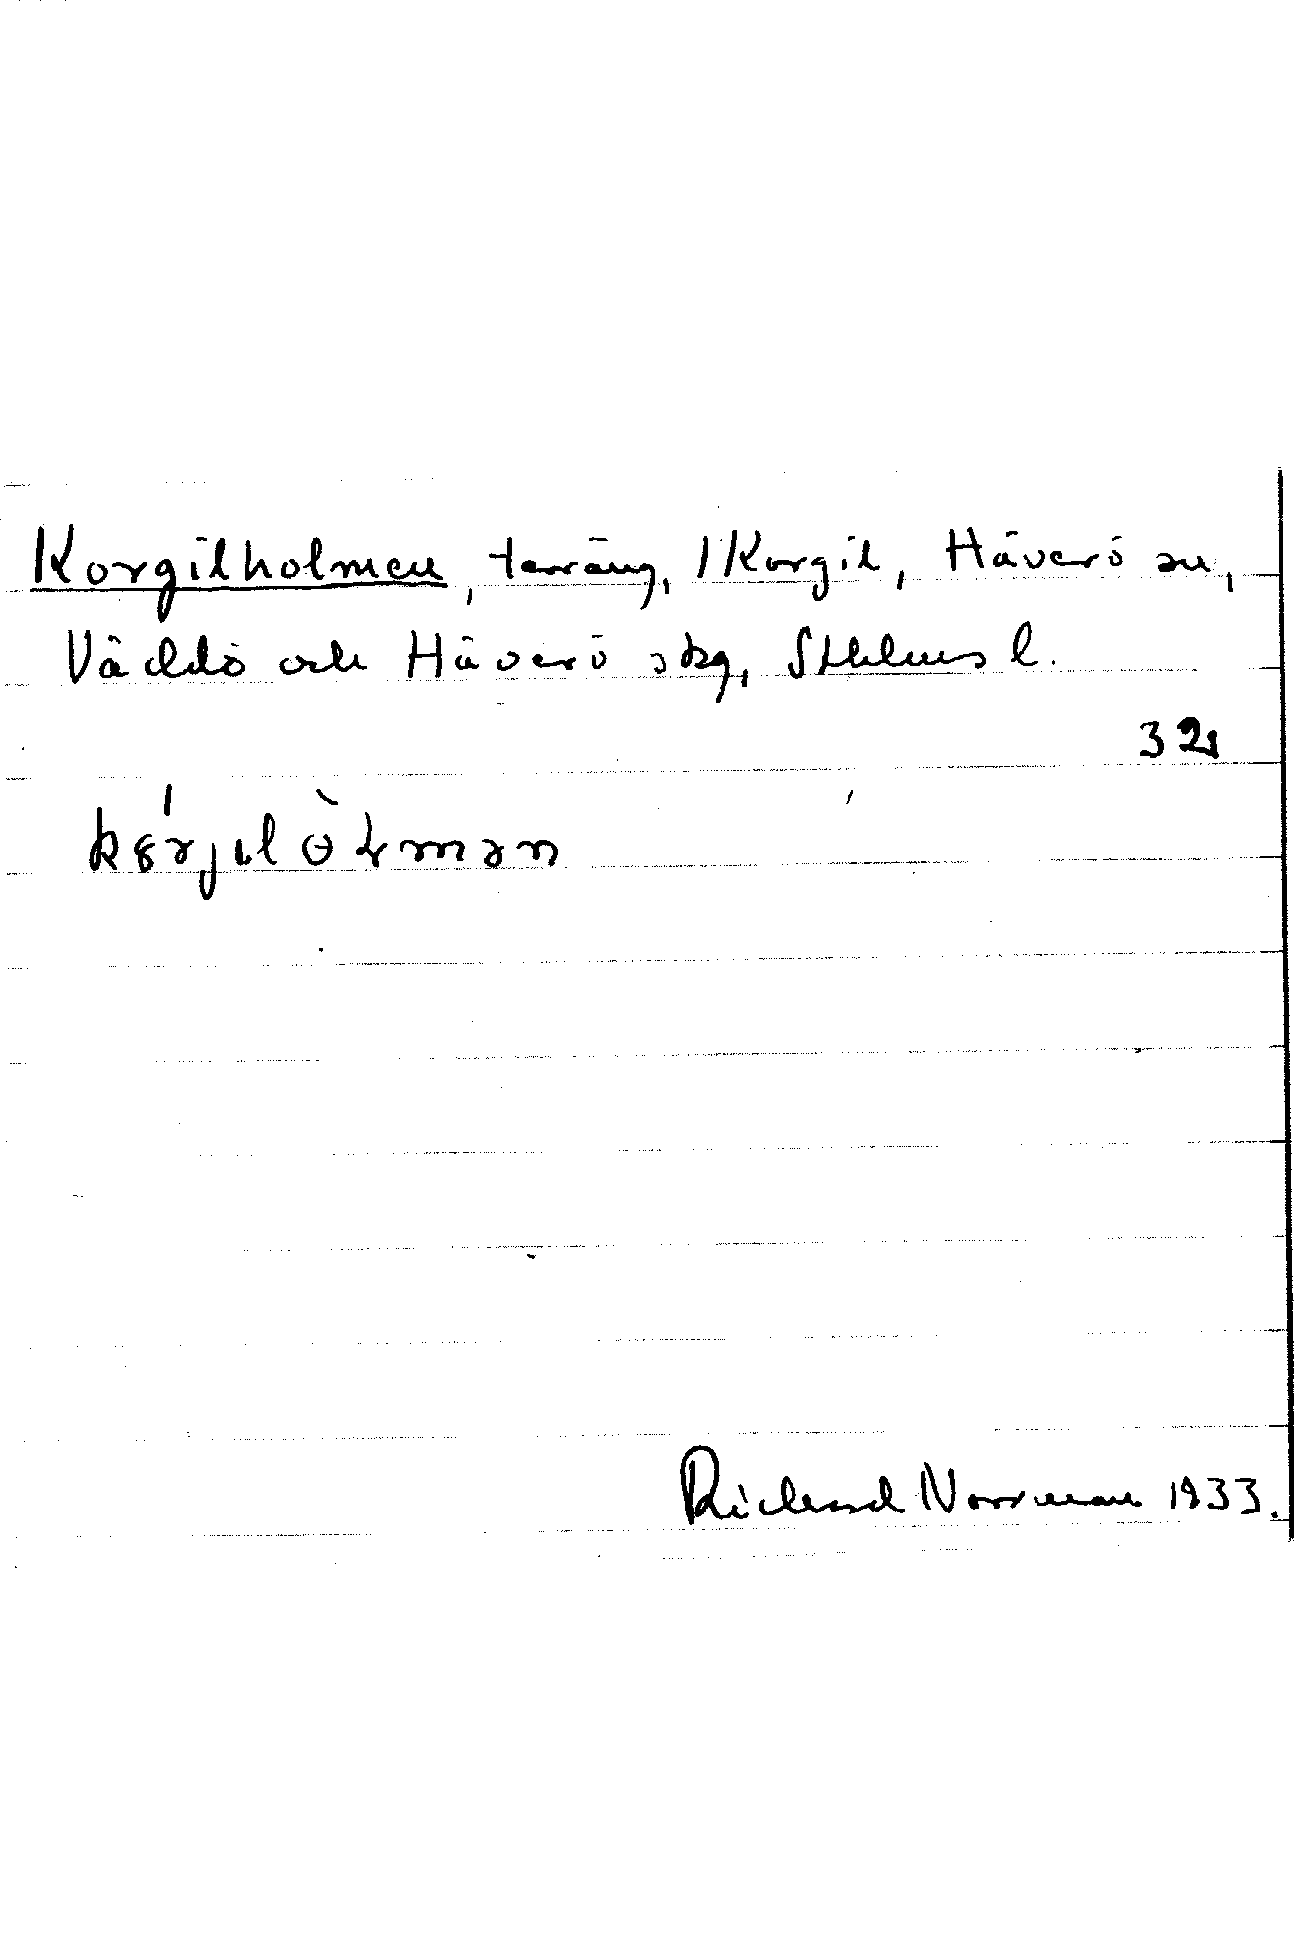 Korgilholmen, terräng, /Korgil, Häverö sn,
Väddö och Häverö skg, Sthlms l.
32
Richard Norrman 1933.